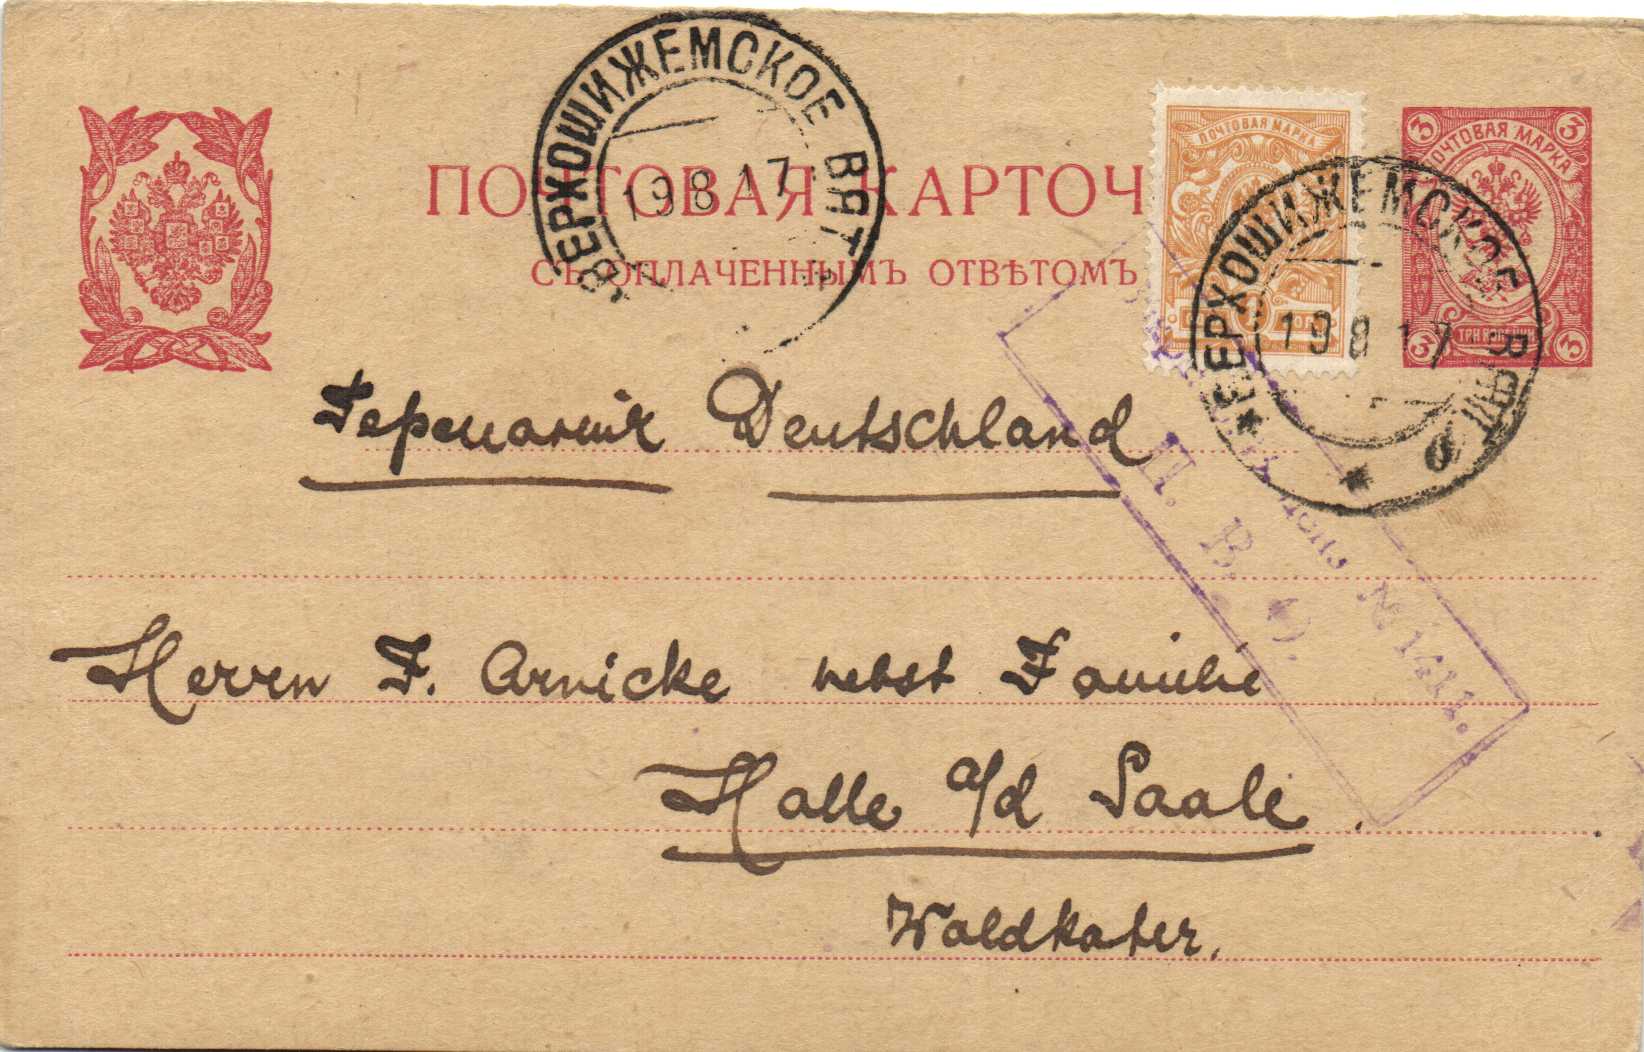 ВЕРХОШИЖЕМСКОЕ ВЯТ
19 8 17
ПОЧТОВАЯ МАРКА
3 ПОЧТОВАЯ МАРКА 3
ПОЧТОВАЯ КАРТОЧ
СЪ ОПЛАЧЕННЫМЪ ОТВѢТОМЪ
КОП
3 3
ВЕРХОШИЖЕМСКОЕ ВЯТ
19 8 17
б
Германія Deutschland
№ 1411.
П. В. О.
Herrn F. Arnicke nebst Familie
Halle a/d Saale.
Waldkater.